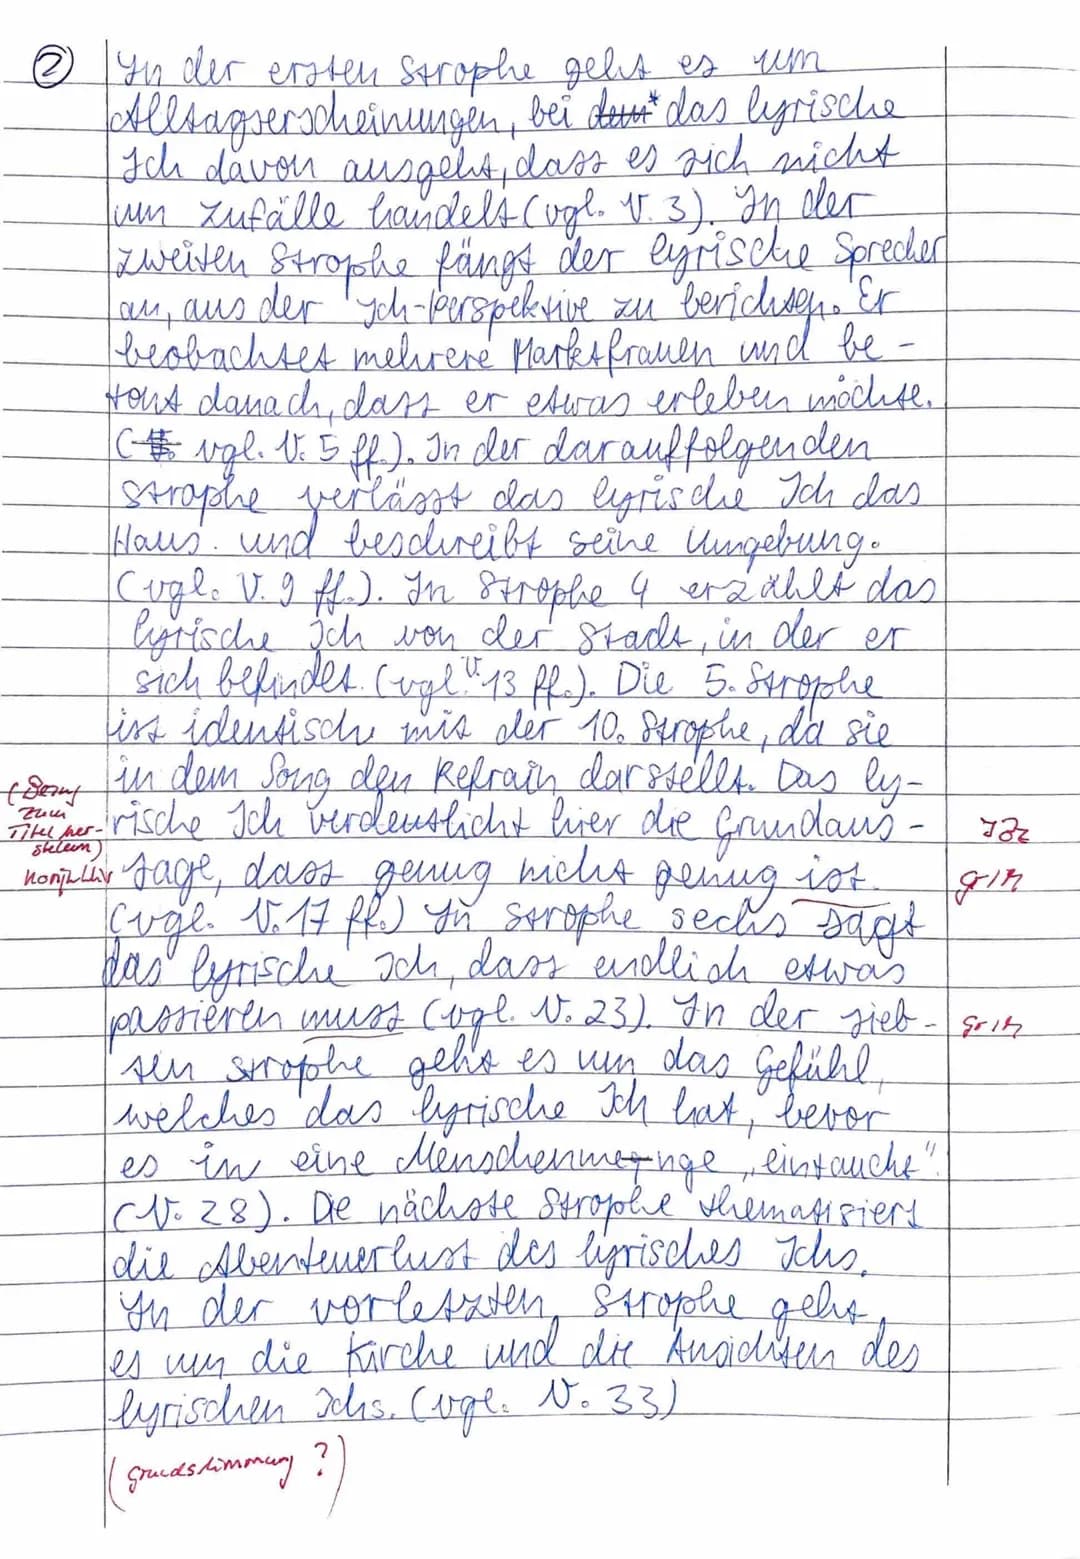 ② In der ersten Strophe geht es um
Alltagserscheinungen, bei dem* das lyrische
Ich davon ausgeht, dass es sich nicht
um Zufälle handelt (vgl. V. 3). In der
zweiten Strophe fängt der lyrische Sprecher
an, aus der Ich-Perspektive zu berichten. Er
beobachtet mehrere Marktfrauen und be-
tont danach, dass er etwas erleben möchte.
( vgl. V. 5 ff.). In der darauffolgenden
Strophe verlässt das lyrische Ich das
Haus. und beschreibt seine Umgebung.
(vgl. V. 9 ff.). In Strophe 4 erzählt das
lyrische Ich von der Stadt, in der er
sich befindet. (vgl. V. 13 ff.). Die 5. Strophe
ist identisch mit der 10. Strophe, da sie
in dem Song den Refrain darstellt. Das ly-
(Bezug
zum
Titel her-
stellen)
rische Ich verdeutlicht hier die Grundaus-
sage, dass genug nicht genug ist.
gr/M
(vgl. V. 17 ff.) In Strophe sechs sagt
das lyrische Ich, dass endlich etwas
passieren muss (vgl. V. 23). In der sieb-
gr/M
ten Strophe geht es um das Gefühl,
welches das lyrische Ich hat, bevor
es in eine Menschenmenge „eintauche"
(V. 28). Die nächste Strophe thematisiert
die Abenteuerlust des lyrisches Ichs.
In der vorletzten Strophe geht
es um die Kirche und die Ansichten des
lyrischen Ichs. (vgl. V. 33)
(Grundstimmung ?)